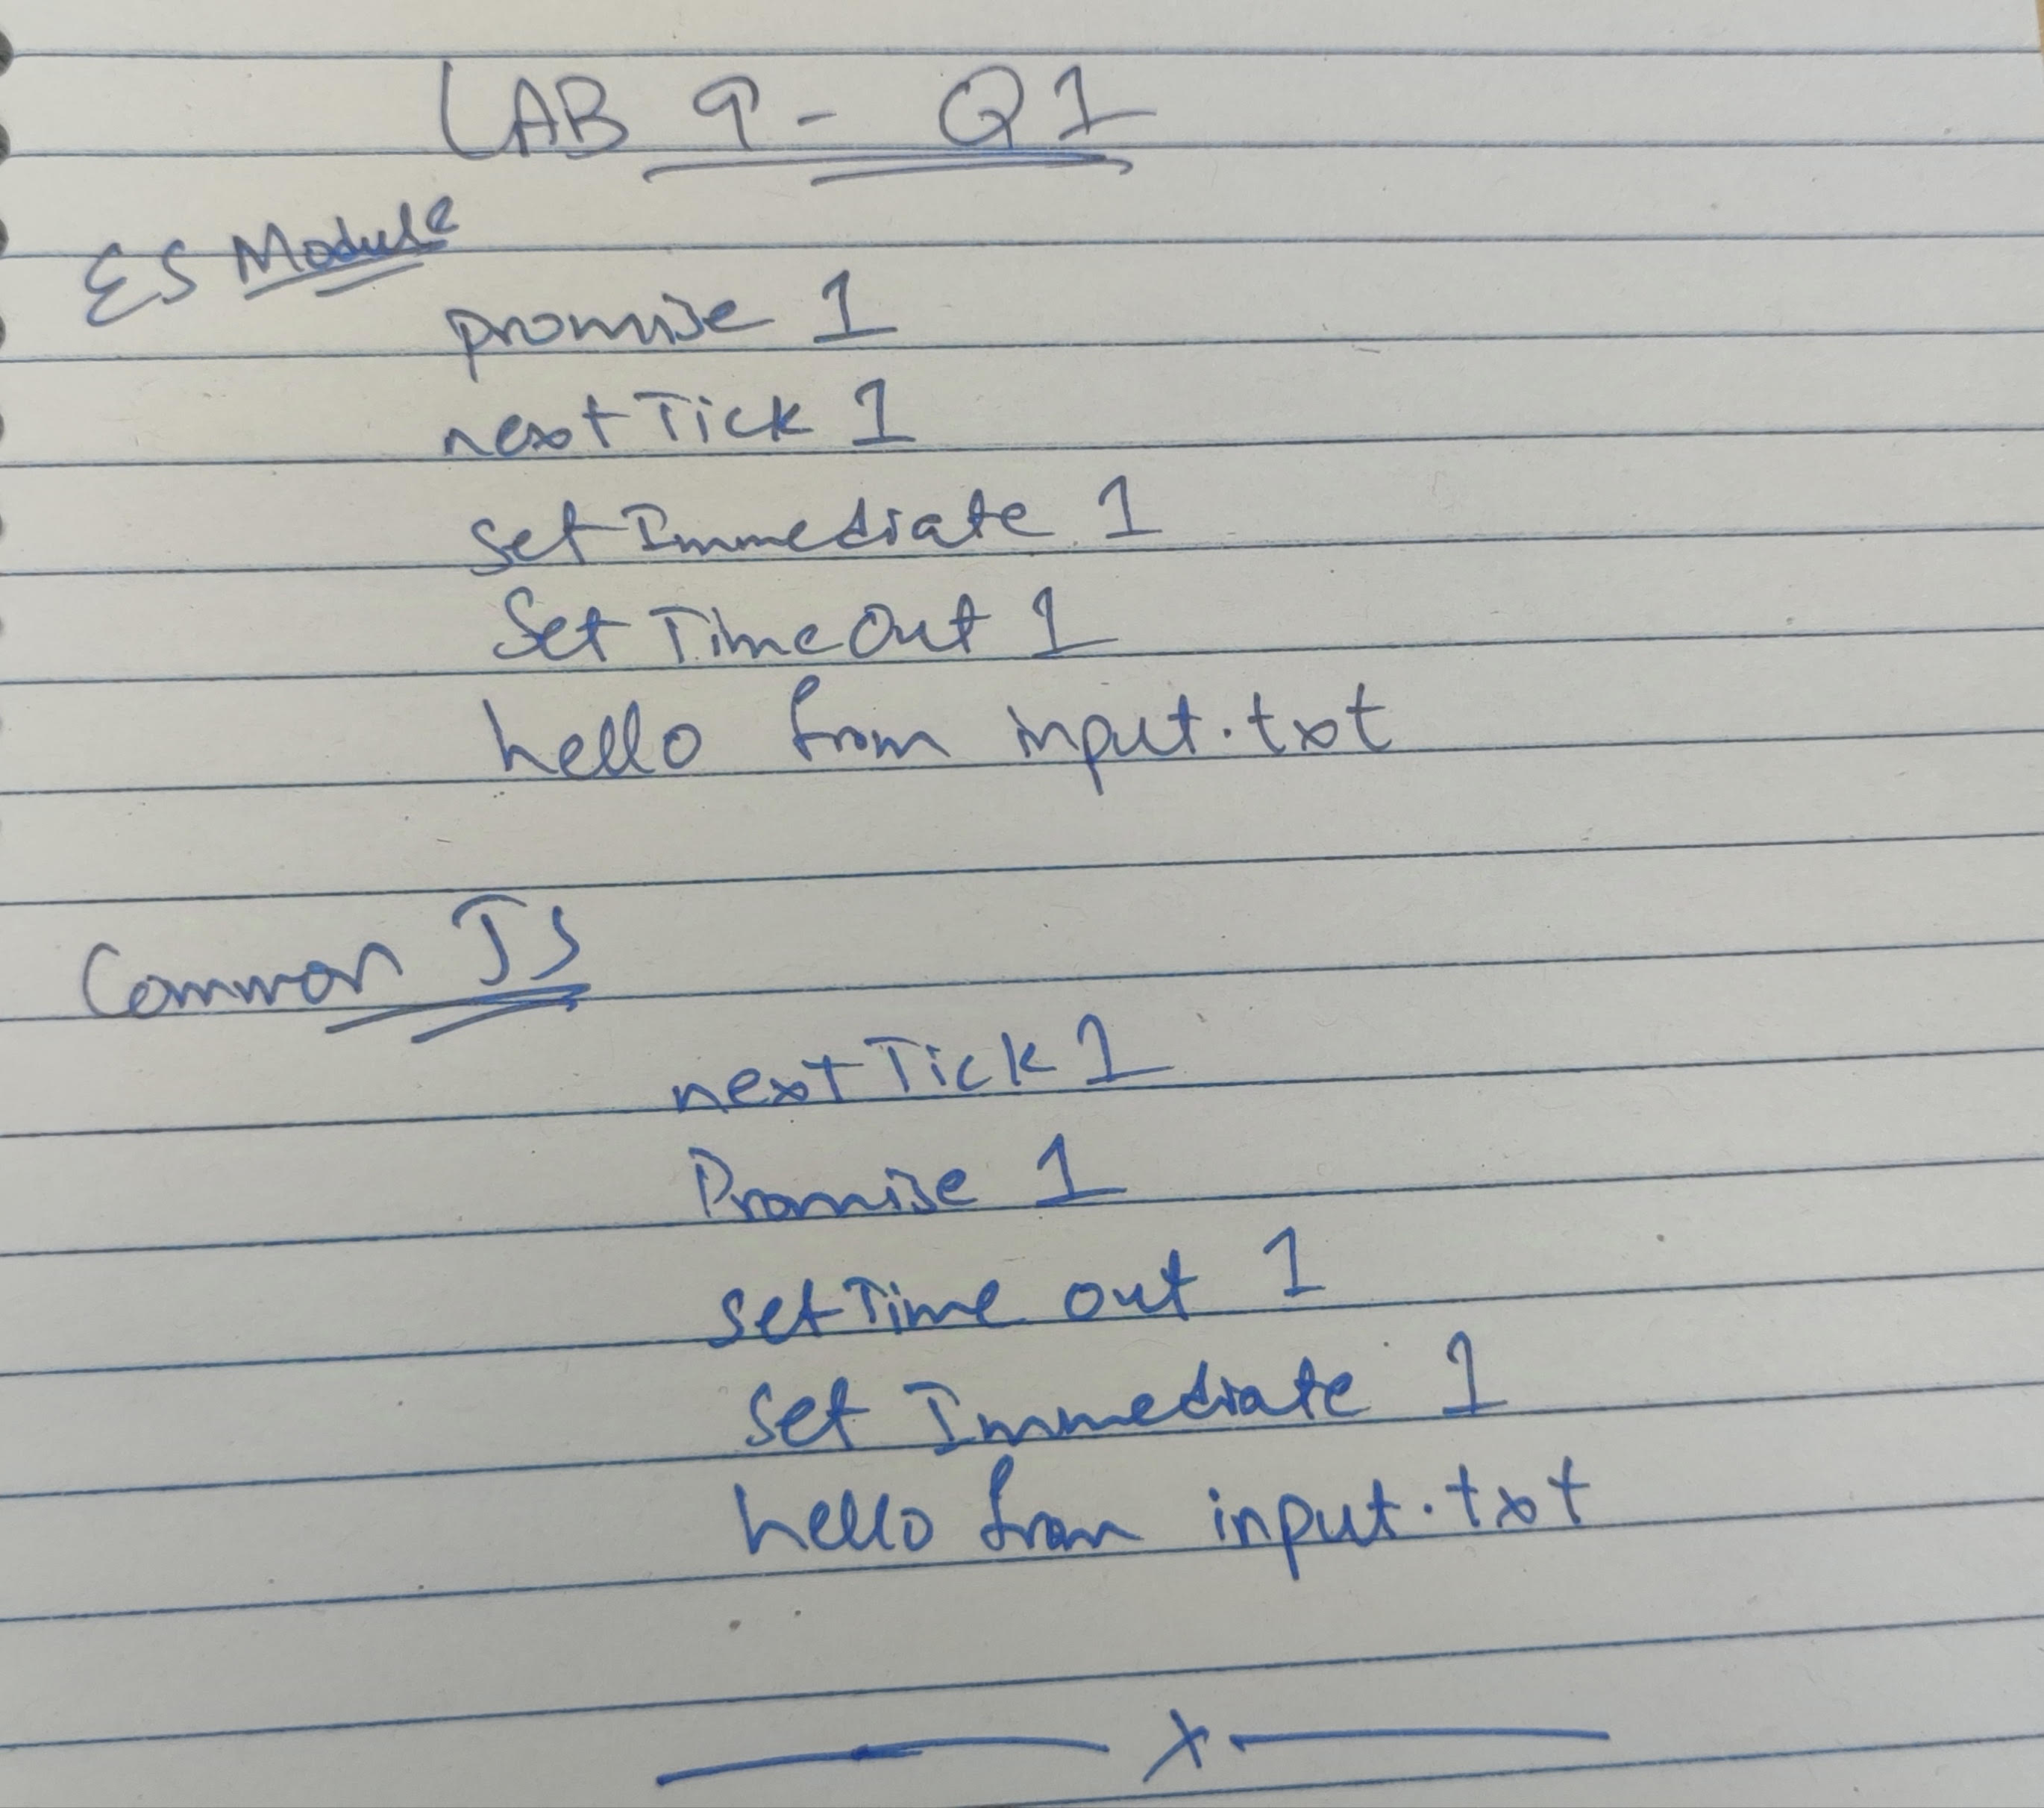 LAB 9 - Q1
ES Module
promise 1
nextTick 1
setImmediate 1
Set TimeOut 1
hello from input.txt
Common JS
nextTick 1
Promise 1
setTime out 1
Set Immediate 1
hello from input.txt
x